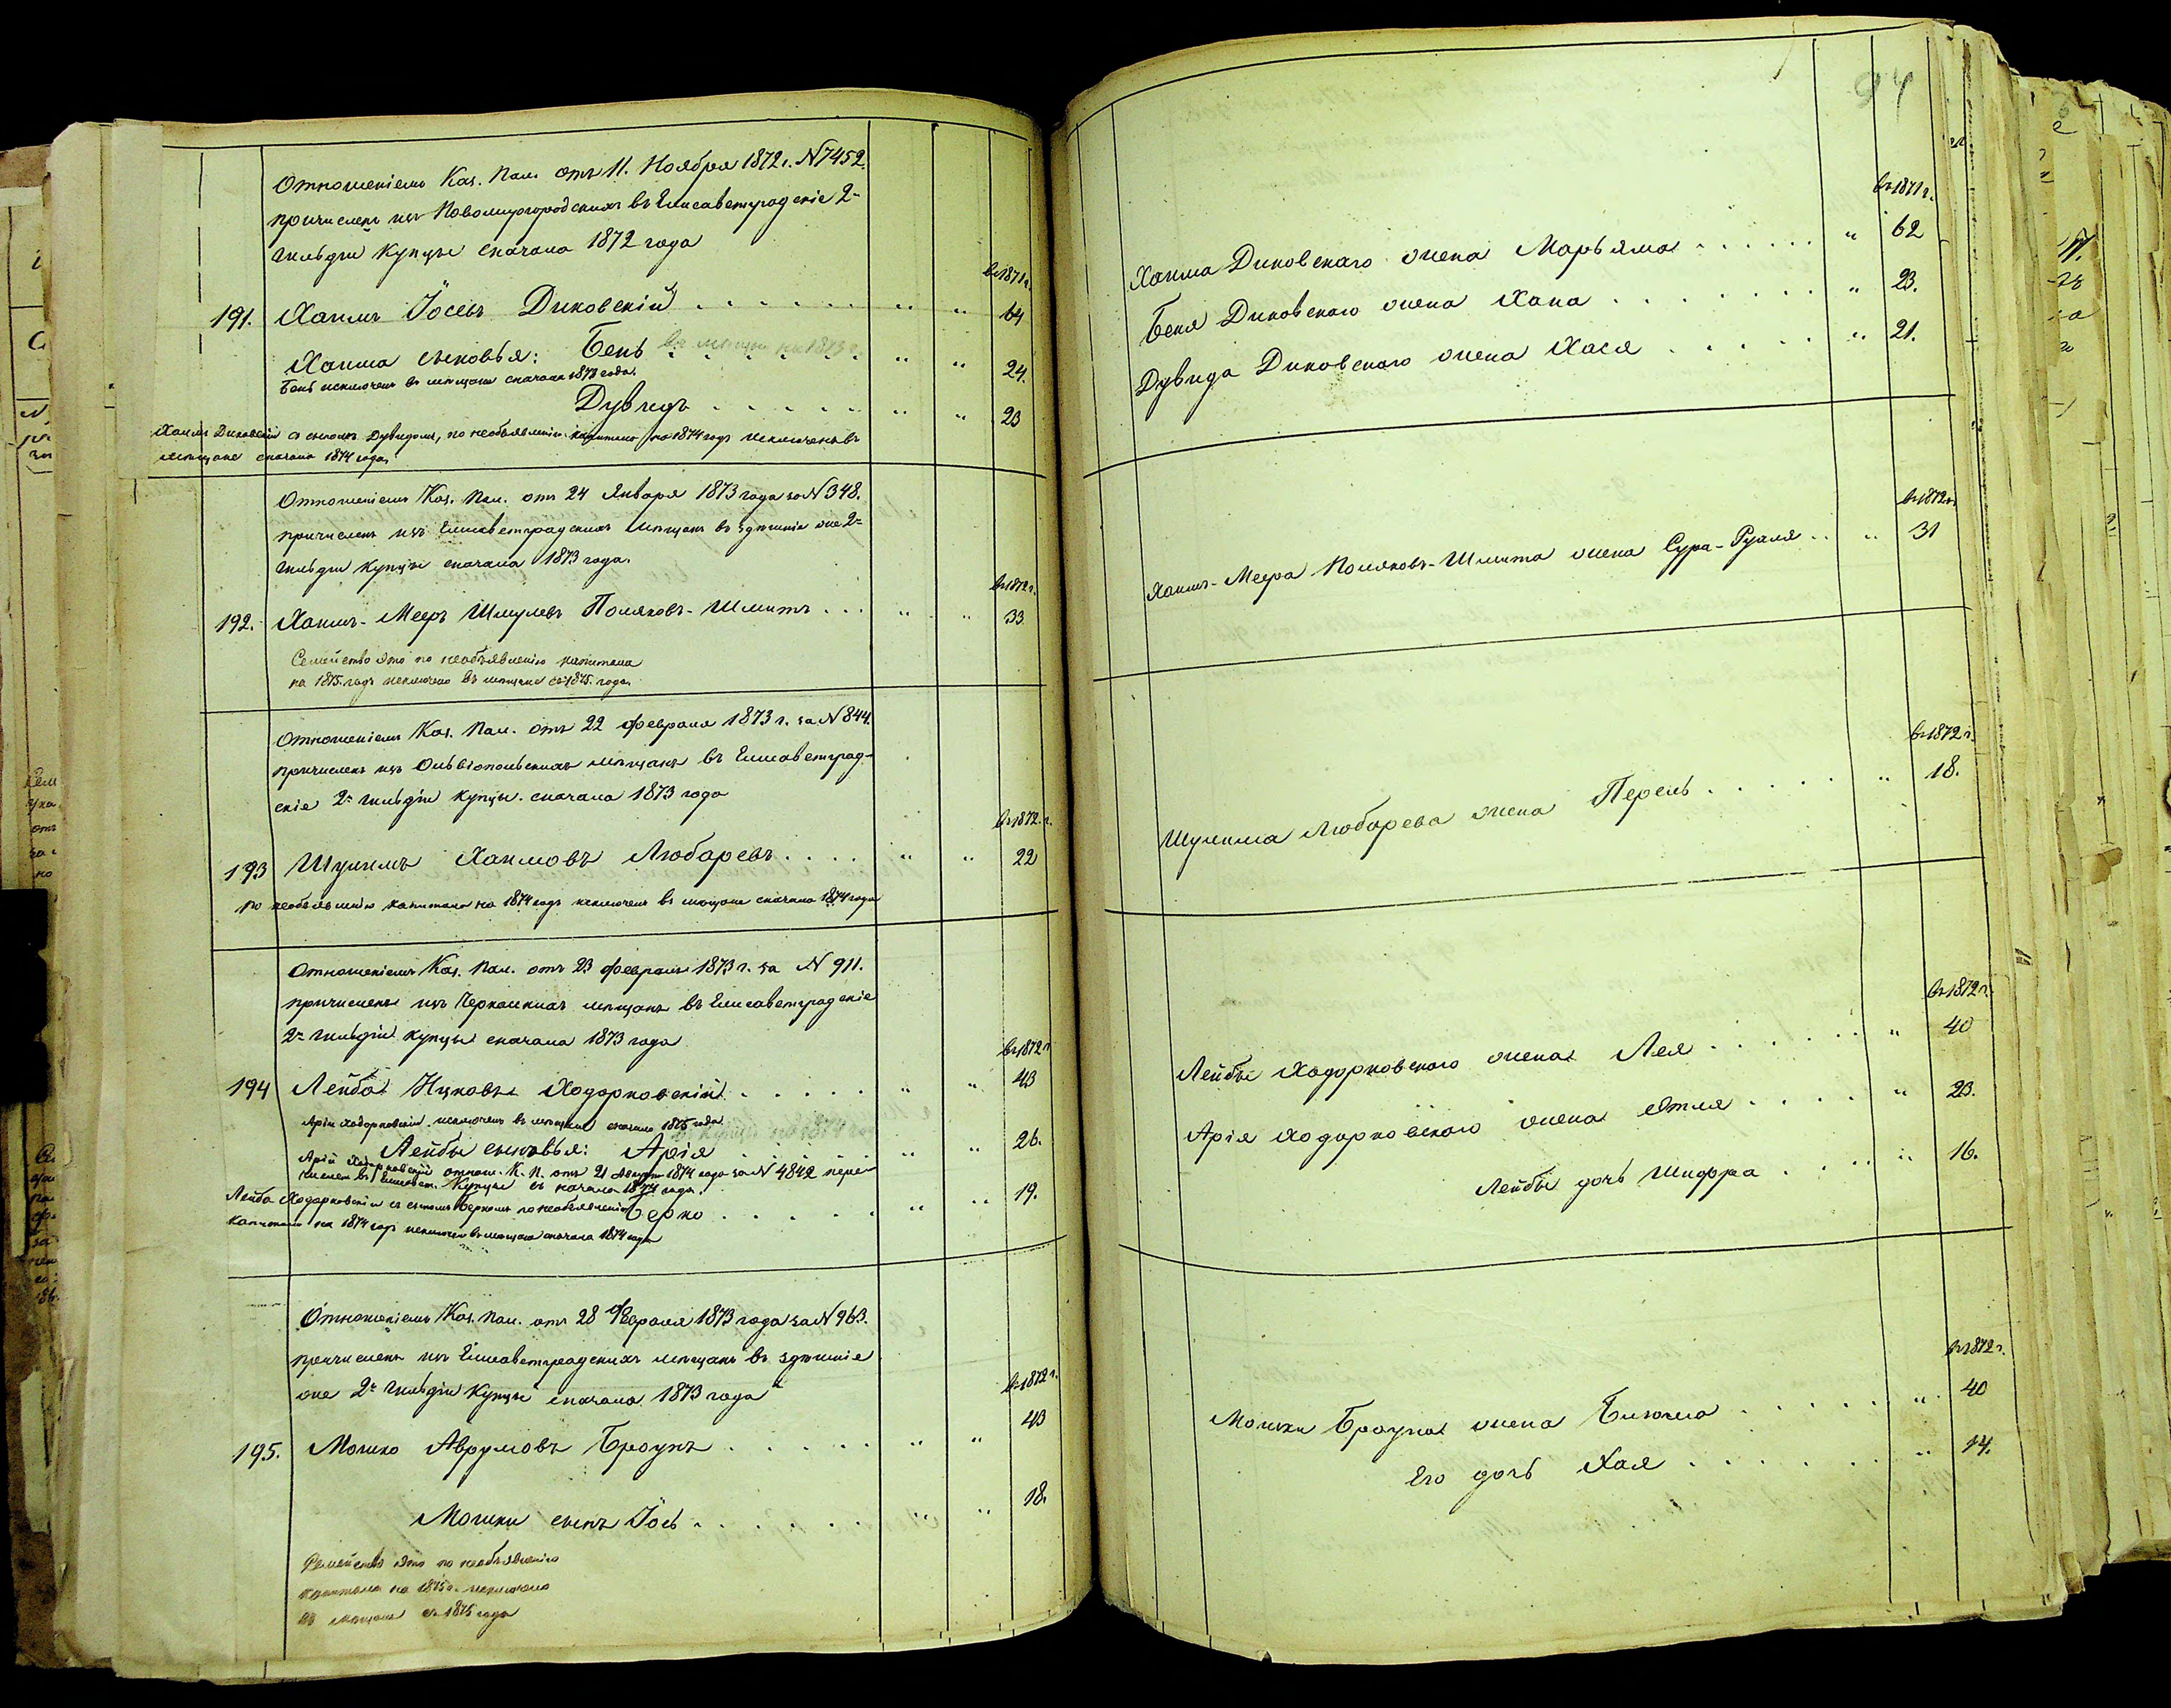 Отношеніемъ Каз. Пал. отъ 11. Ноября 1872 г. N 7452.
причисленъ изъ Новомиргородскихъ въ Елисаветградскіе 2й
гильдіи купцы сначала 1872 года
въ 1871 г.
191. Хаимъ Іосевъ Диковскій . . . . . . " " 64
Хаима сыновья: Бень въ мѣщан. на 1873 г. " " 24.
Бень исключенъ въ мѣщане сначала 1873 года.
Дувидъ . . . . . " " 23
Хаимъ Диковскій съ сыномъ Дувидомъ, по необъявленію капитала на 1874 годъ исключенъ въ
мѣщане сначала 1874 года.
Отношеніемъ Каз. Пал. отъ 24 Января 1873 года за N 348.
причисленъ изъ Елисаветградскихъ мѣщанъ въ здѣшніе же 2й
гильдіи купцы сначала 1873 года.
въ 1872 г.
192. Хаимъ-Мееръ Шмулевъ Поляковъ-Шмитъ . . . " " 33
Семейство это по необъявленію капитала
на 1875 годъ исключено въ мѣщане съ 1875 года.
Отношеніемъ Каз. Пал. отъ 22 февраля 1873 г. за N 844.
причисленъ изъ Ольвіопольскихъ мѣщанъ въ Елисаветград-
скіе 2й гильдіи купцы сначала 1873 года
въ 1872 г.
193 Шулимъ Хаимовъ Любаревъ . . . . " " 22
по необъявленію капитала на 1874 годъ исключенъ въ мѣщане сначала 1874 года
Отношеніемъ Каз. Пал. отъ 23 февраля 1873 г. за N 911.
причисленъ изъ Черкаскихъ мѣщанъ въ Елисаветградскіе
2й гильдіи купцы сначала 1873 года
въ 1872 г.
194 Лейба Ицковъ Ходорковскій . . . . . " " 43
Арія Ходорковскій исключенъ въ мѣщане сначала 1875 года
Лейбы сыновья: Арія . . . . . " " 26.
Арій Ходорковскій отнош. К. П. отъ 21 Августа 1874 года за N 4842 пере-
численъ въ Елисавет. Купцы съ начала 1874 года.
Лейба Ходорковскій съ сыномъ Беркомъ по необъявленію
Берко . . . . . " " 19.
капитала на 1874 годъ исключенъ въ мѣщане сначала 1874 года
Отношеніемъ Каз. Пал. отъ 28 Февраля 1873 года за N 963.
причисленъ изъ Елисаветградскихъ мѣщанъ въ здѣшніе
же 2й гильдіи Купцы сначала 1873 года
въ 1872 г.
195. Мошко Аврумовъ Броунъ . . . . . " " 43
Мошки сынъ Іось . . . . . . " " 18.
Семейство это по необъявленію
капитала на 1875 г. исключено
въ мѣщане съ 1875 года
94
въ 1871 г.
Хаима Диковскаго жена Марьяма . . . . . . " 62
Беня Диковскаго жена Хана . . . . . . . " 23.
Дувида Диковскаго жена Хася . . . . . " 21.
въ 1872 г.
Хаимъ-Меера Поляковъ-Шмита жена Сура-Рузля . . " 31
въ 1872 г.
Шулима Любарева жена Перель . . . . . " 18.
въ 1872 г.
Лейбы Ходорковскаго жена Лея . . . . . . " 40
Арія Ходорковскаго жена Этля . . . . . " 23.
Лейбы дочь Шифра . . . . " 16.
въ 1872 г.
Мошки Броуна жена . . . . . . " 40
Его дочь Хая . . . . . . " 14.